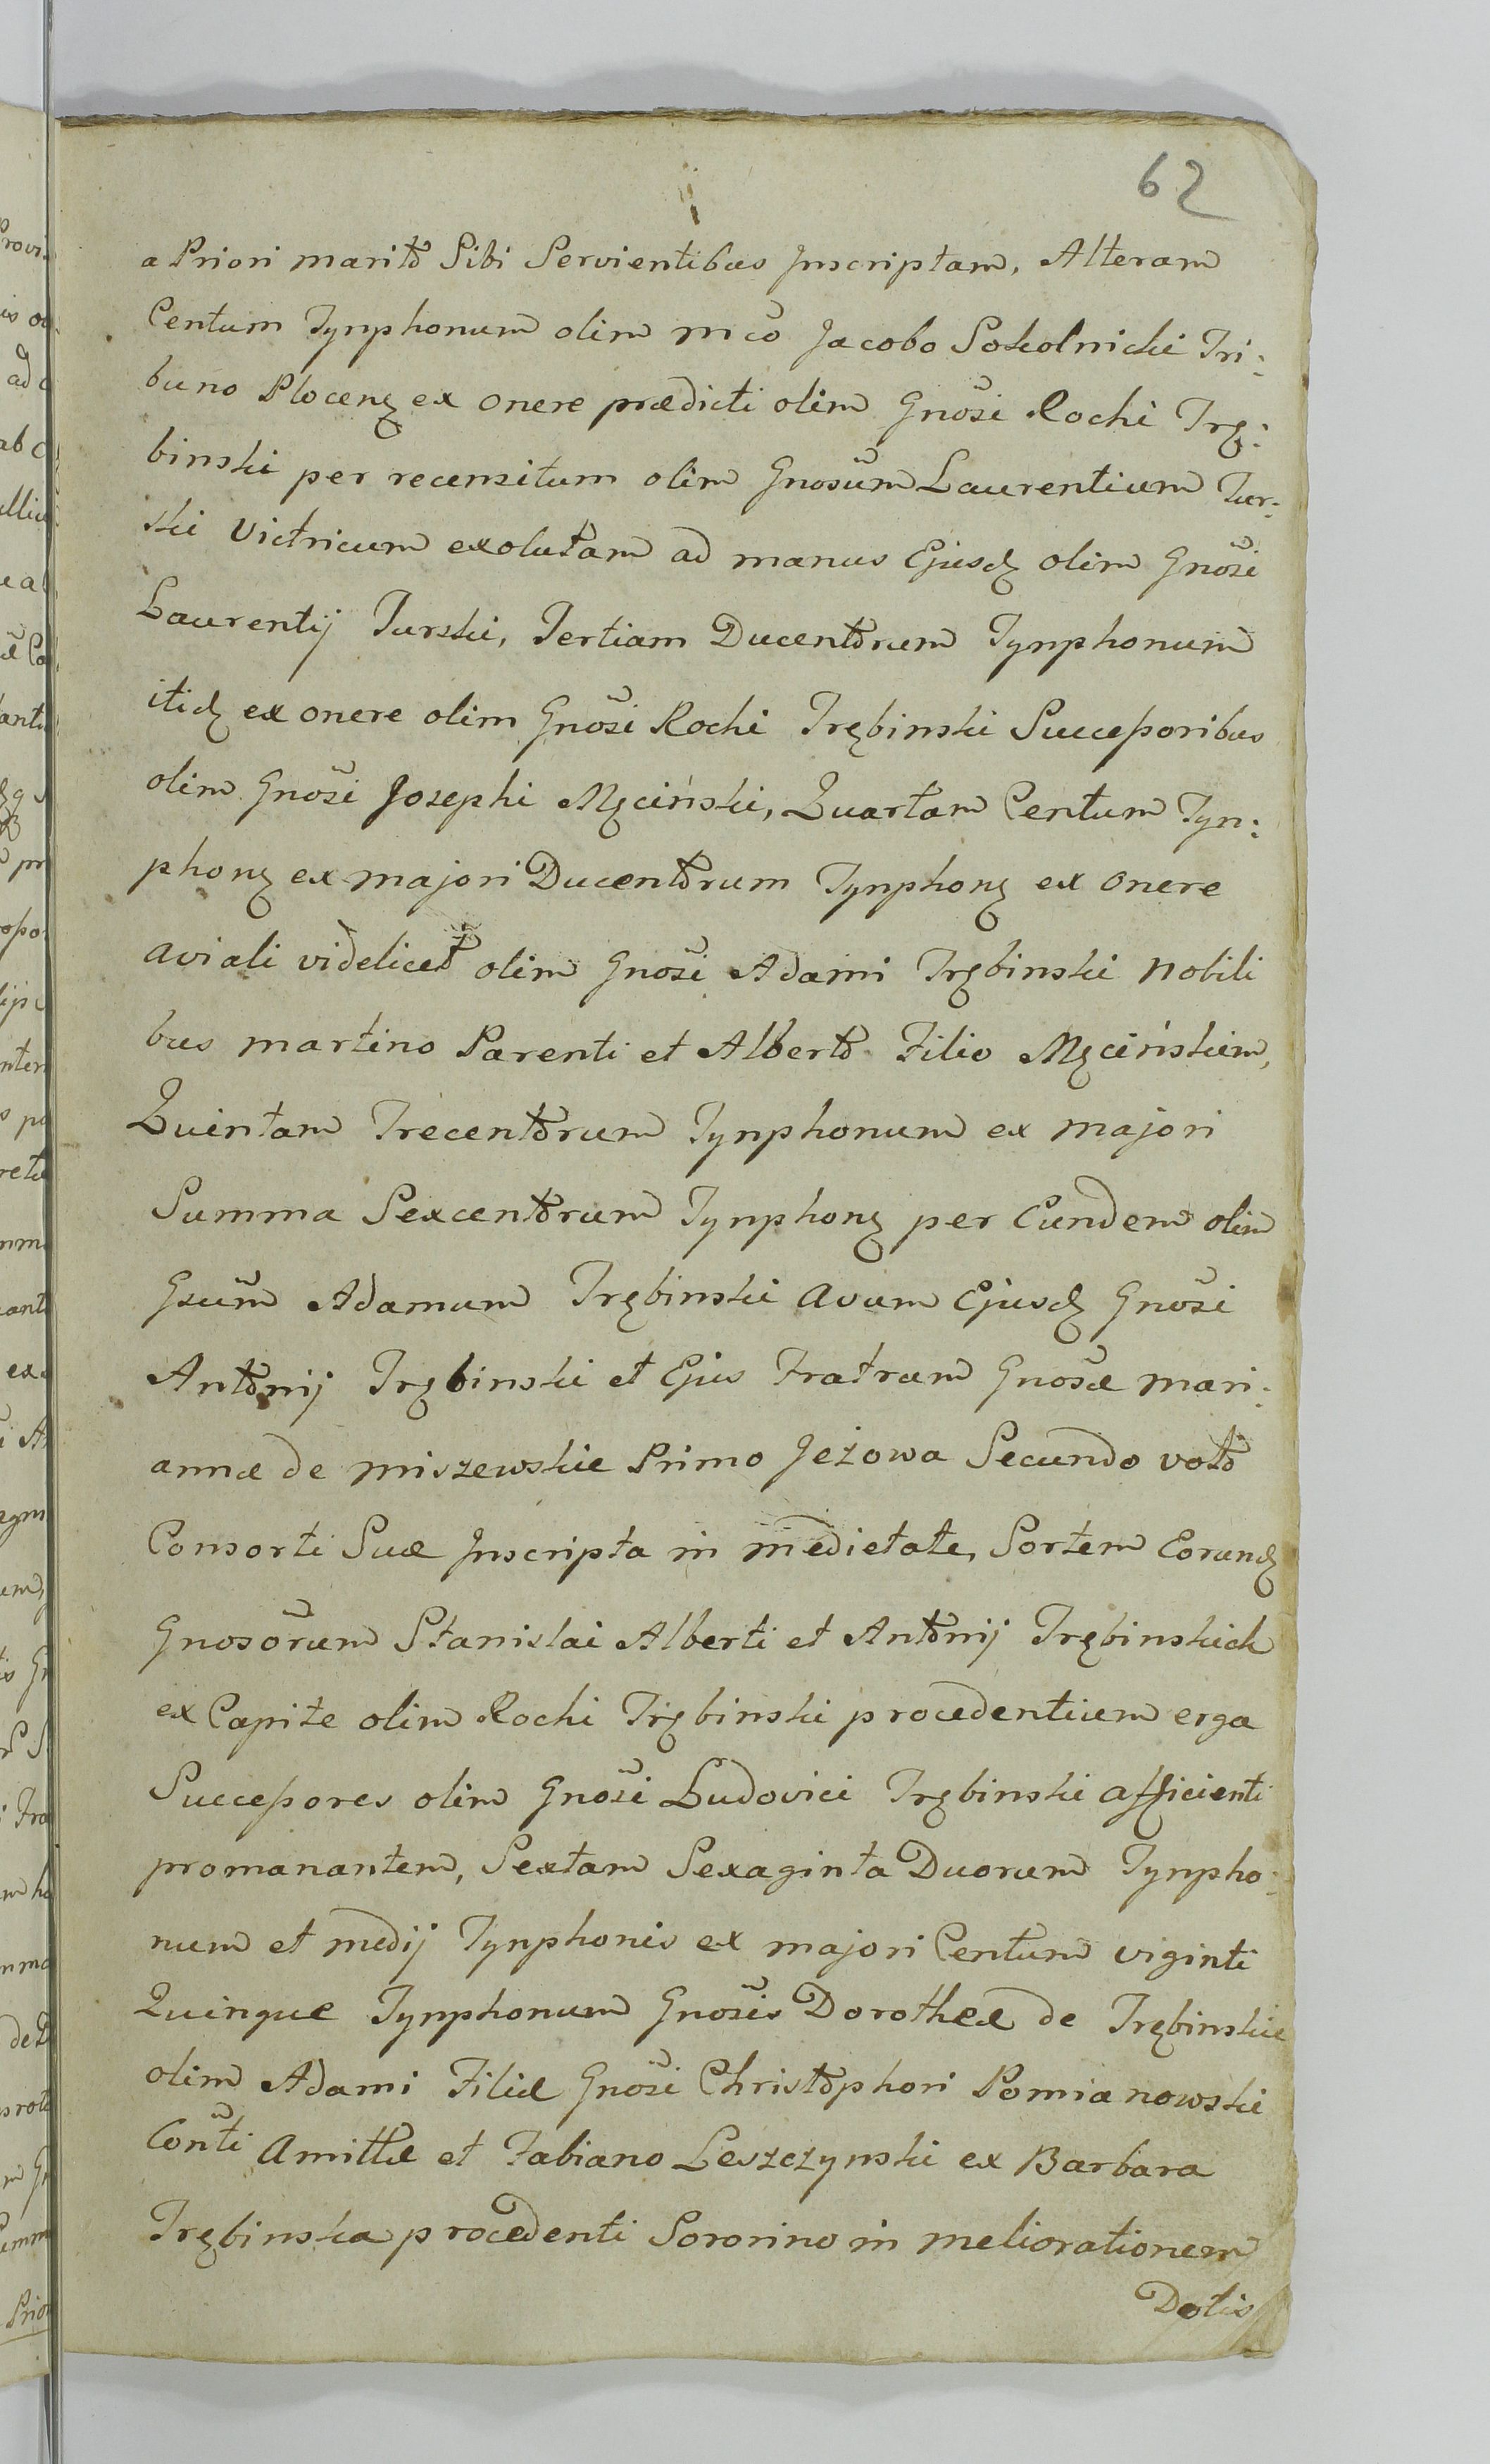 62
a Priori marito Sibi Servientibus Inscriptam, Alteram
Centum Tynphonum olim mc̃o Jacobo Sokolnicki Tri:
buno Plocenʒ ex onere prædicti olim Gnõsi Rochi Trę:
binski per recensitum olim Gnosũm Laurentium Tur:
ski Victricum exolutam ad manus Ejusdʒ olim Gnõsi
Laurentij Turski, Tertiam Ducentorum Tynphonum
itidʒ ex onere olim Gnõsi Rochi Trębinski Successoribus
olim Gnõsi Josephi Męciński, Quartam Centum Tyn:
phonʒ ex majori Ducentorum Tynphonʒ ex onere
aviali videlicet olim Gnõsi Adami Trębinski Nobili
bus Martino Parenti et Alberto Filio Męcińskim,
Quintam Trecentorum Tynphonum ex majori
Summa Sexcentorum Tynphonʒ per Eundem olim
Gsũm Adamum Trębinski Avum Ejusdʒ Gnõsi
Antonij Trębinski et Ejus Fratrum Gnõsæ Mari:
annæ de Miszewskie Primo Jeżowa Secundo voto
Consorti Suæ Inscripta in medietate, Sortem Eorundʒ
Gnosõrum Stanislai Alberti et Antonij Trębinskich
ex Capite olim Rochi Trębinski procedentium erga
Successores olim Gnõsi Ludovici Trębinski afficienti
promanantem, Sextam Sexaginta Duorum Tynpho:
num et medij Tynphonis ex majori Centum viginti
Quinque Tynphonum Gnõsis Dorotheæ de Trębinskie
olim Adami Filiæ Gnõsi Christophori Pomianowski
Cont̃i Amittæ et Fabiano Leszczynski ex Barbara
Trębinska procedenti Sororino in meliorationem
Dotis